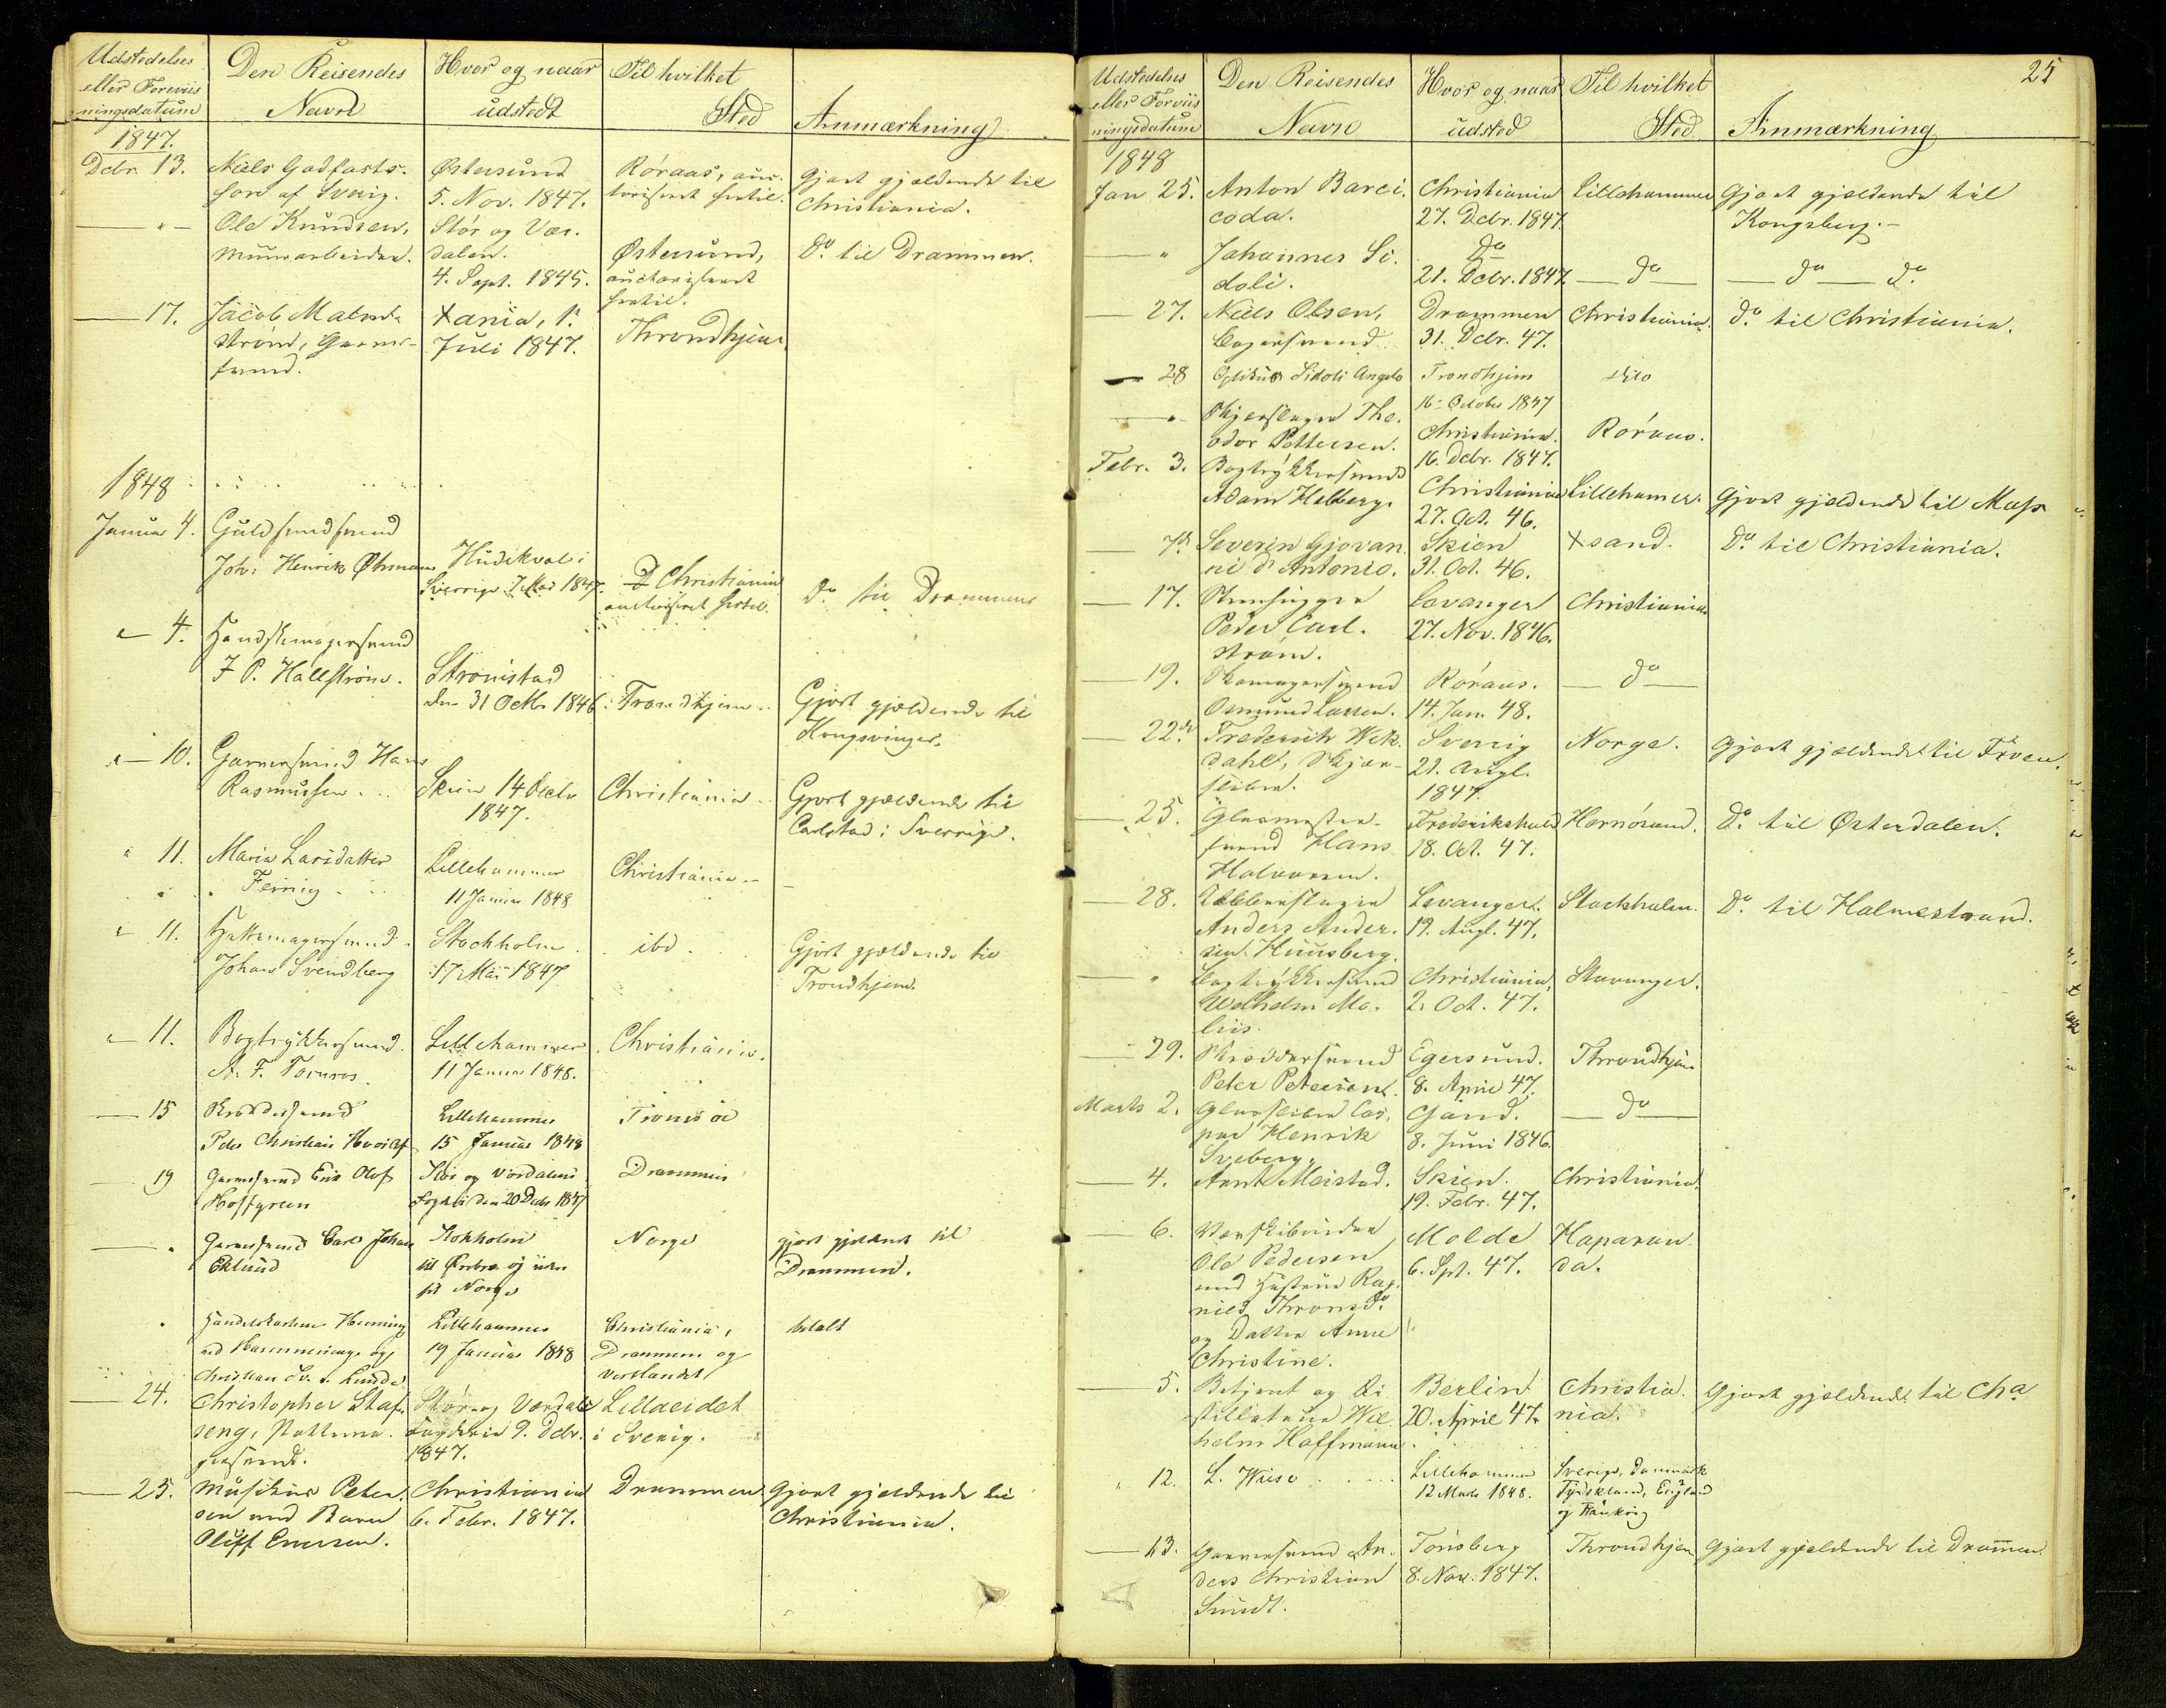 Udstedelses
eller Foreviis
ningsdatum
Den Reisendes
Navn
Hvor og naar
udstedt
Til hvilket
Sted
Anmærkning
1847.
Debr. 13.
Niels Godfasts-
søn af Sverig.
Østersund
5. Nov. 1847.
Röraas, auc-
toriseret hertil.
Gjort gjældende til
Christiania.
— " —
Ole Knudsen,
Muurarbeider.
Stör og Vær-
dalen.
4. Sept. 1845.
Østersund,
auctoriseret
hertil.
Do. til Drammen.
— 17.
Jacob Malm-
ström, Garver-
svend.
Xania, 1.
Juli 1847.
Throndhjem.
1848
Januar 4.
Guldsmedsvend
Joh: Henrik Öhman
Hudiksval i
Sverrige 7 Mai 1847.
Christiania
auctoriseret hertil.
Do til Drammen
— 4.
Handskemagersvend
J. P. Hällström.
Strömstad
den 31 Octbr 1846.
Trondhjem.
Gjort gjeldende til
Kongsvinger.
— 10.
Garversvend Hans
Rasmussen.
Skien 14 Decbr
1847.
Christiania
Gjort gjeldende til
Carlstad i Sverrige.
" 11.
Maria Larsdatter
Lillehammer
11 Januar 1848
Christiania
" 11.
Hattemagersvend
Johan Svendberg
Stockholm
17 Mai 1847
ibd.
Gjort gjeldende til
Trondhjem.
— 11.
Bogtrykkersvend
A. F. Tornros
Lillehammer
11 Januar 1848.
Christiania.
— 15
Skrædersvend
Peder Christian
Lillehammer
15 Januar 1848
Tromsöe
— 19
Garversvend Eric Olof
Hoffgreen
Stör og Værdalens
Fogderi den 20 Debr 1847
Drammen
— "
Garversvend Carl Johan
Eklund
Stokholm
til Örebro og
til Norge
Norge
gjort gjeldende til
Drammen.
"
Lillehammer
19 Januar 1848
Christiania,
Drammen og
Vestlandet
betalt
— 24.
Christopher Staf-
seng, Pottema-
gersvend.
Stör- og Værdals
Fogderie 9. Debr.
1847.
Lillaeidet
i Sverig.
— 25.
Musikus Peter-
sen med Barn
Oluff Enersen.
Christiania
6. Febr. 1847.
Drammen
Gjort gjeldende til
Christiania.
25
Udstedelses
eller Forviis
ningsdatum
Den Reisendes
Navn
Hvor og naar
udsted
Til hvilket
Sted
Anmærkning
1848
Jan 25.
Anton Barci-
coda.
Christiania
27. Debr. 1847.
Lillehammer
Gjort gjældende til
Kongsberg.
— "
Johannes Si-
doli.
Do
21. Debr. 1847.
— do —
— do — do.
— 27.
Niels Olsen,
Bagersvend.
Drammen
31. Debr. 47.
Christiania.
do. til Christiania.
— 28
Optikus Sidoli Angelo
Trondhjem
16 October 1847
dito
— "
Skjærsliper The-
odor Pettersen.
Christiania.
16. Debr. 1847.
Röraas.
Febr. 3.
Bogtrykkersvend
Adam Helberg.
Christiania
27. Oct. 46.
Lillehamer.
Gjort gjeldende til Moss
— 7de
Severin Gjovan-
ni di Antonio.
Skien
31. Oct. 46.
Xsand.
Do. til Christiania.
— 17.
Steenhugger
Peder Carl-
ström.
Levanger
27. Nov. 1846.
Christiania
— 19.
Skomagersvend
Osmund Larsen.
Röraas.
14. Jan. 48.
— do —
— 22de
Frederich Wek-
dahl, Skjær-
sliber.
Sverrig
21. Augl.
1847.
Norge.
Gjort gjeldende til
— 25.
Glasmester-
svend Hans
Halvorsen.
Frederikshald
18. Oct. 47.
Hernösand.
Do. til Østerdalen.
— 28.
Kobberslager
Anders Ander-
sen Huusberg.
Levanger.
19. Augl. 47.
Stockholm.
Do. til Holmestrand.
— "
Bogtrykkersvend
Wilhelm Mo-
liis.
Christiania,
2. Oct. 47.
Stavanger.
— 29.
Skræddersvend
Peter Petersen.
Egersund.
8. April 47.
Throndhjem
Marts 2.
Glassliber Cas-
par Henrik
Sveberg.
8. Juni 1846.
— do —
— 4.
Arnt Meistad.
Skien.
19. Febr. 47.
Christiania.
— 6.
Ole Pedersen
med Hustrue Rag-
nild Thronsdr
og Datter Anne
Christine.
Molde
6. Spt. 47.
Haparan-
da.
— 5.
Betjent og De-
stillateur Wil-
helm Hoffmann.
Berlin
20. April 47.
Christia-
nia.
Gjort gjeldende til Cha.
" 12.
L. Wiese
Lillehammer
12 Marts 1848.
Sverige, Danmark
Tydskland, England
og Frankrig
— 13.
Garversvend An-
ders Christian
Sundt.
Tönsberg
8. Nov. 1847.
Throndhjem
Gjort gjeldende til Drammen.